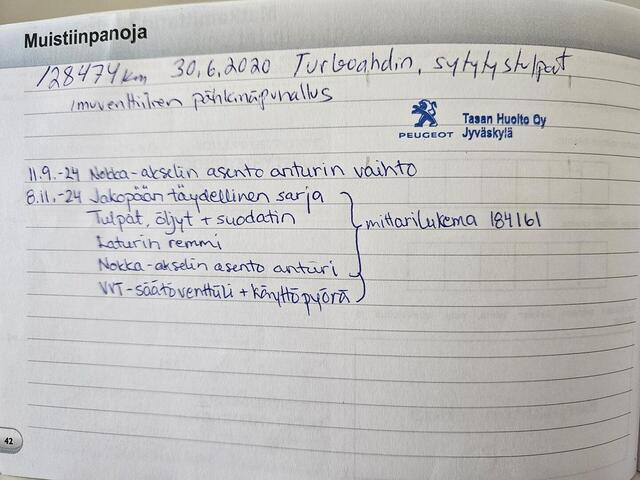 Muistiinpanoja
128474 km 30.6.2020 Turboahdin, sytytystulpat
imuventtiilien pähkinäpuhallus
PEUGEOT
Tasan Huolto Oy
Jyväskylä
11.9.-24 Nokka-akselin asento anturin vaihto
8.11.-24 Jakopään täydellinen sarja
Tulpat, öljyt + suodatin
mittarilukema 184161
Laturin remmi
Nokka-akselin asento anturi
VVT-säätöventtiili + käyttöpyörä
42